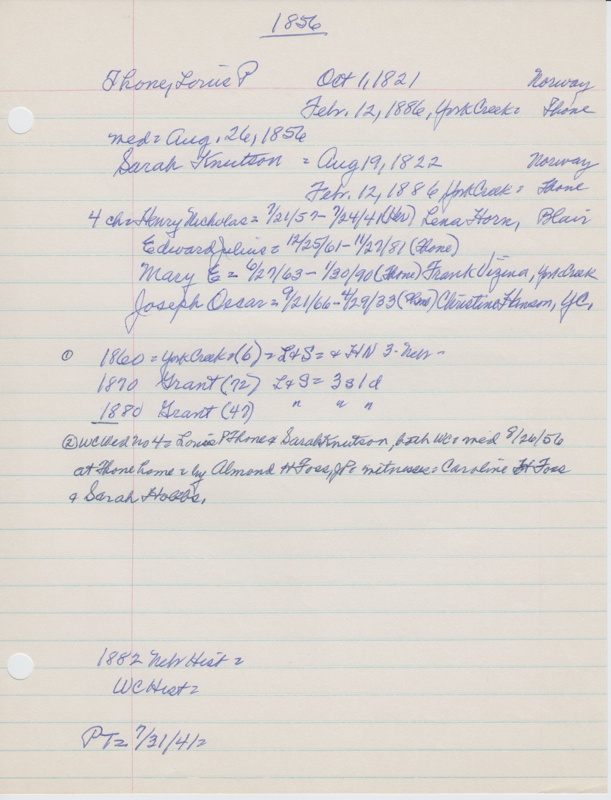 1856
Thone, Louis P Oct 1, 1821 Norway
Febr. 12, 1886, York Creek = Thone
med = Aug. 26, 1856
Sarah Knutson = Aug 19, 1822 Norway
Febr. 12, 1886 York Creek = Thone
4 ch = Henry Nicholas = 7/21/57 - 7/24/41 Lena Horn, Blair
Edward Julius = 12/25/61 - 11/27/81 (Thone)
Mary E = 6/27/63 - 1/30/90 (Thone) Frank Vizina, York Creek
Joseph Oscar = 9/21/66 - 4/29/33 (Thone) Christine Hanson, YC,
① 1860 = York Creek = (6) = L & S = & HN 3 - Nebr -
1870 Grant (72) L & S = 3 s 1 d
1880 Grant (47) " " "
② WC Wed no 4 = Louis P Thone & Sarah Knutson, both WC = med 8/26/56
at Thone home = by Almond H Foss, JP = witnesses = Caroline H Foss
& Sarah Hobbs.
1882 Nebr Hist =
WC Hist =
PT = 7/31/41 =